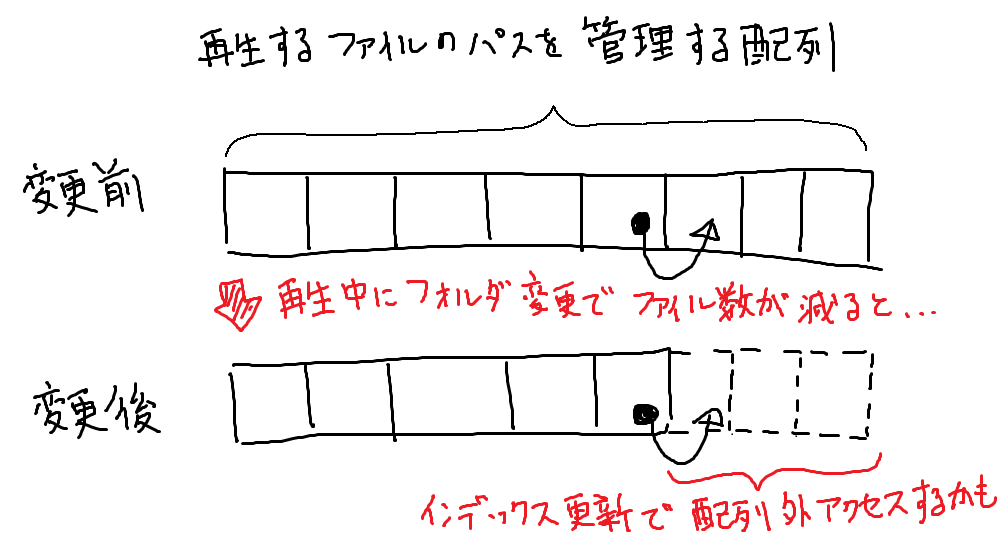 再生するファイルのパスを管理する配列
変更前
再生中にフォルダ変更でファイル数が減ると...
変更後
インデックス更新で配列外アクセスするかも